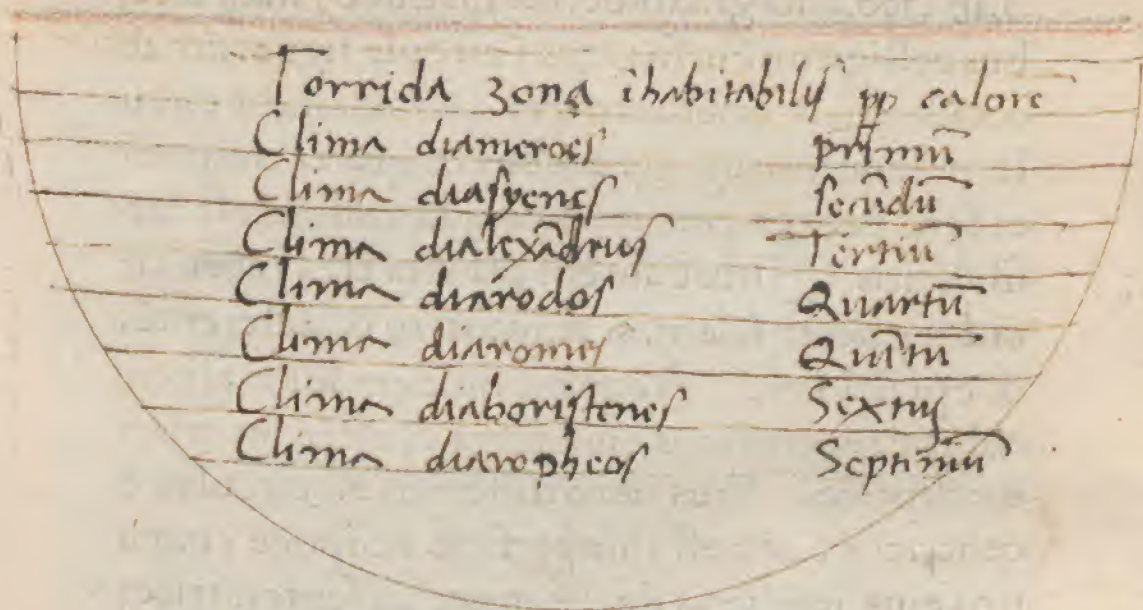 Torrida zona īhabitabilis pp calorē
Clima diameroes prīmū
Clima diasyenes secūdū
Clima dialexādrus Tertiū
Clima diarodos Quartū
Clima diaromes Quītū
Clima diaboristenes Sextus
Clima diaropheos Septimū